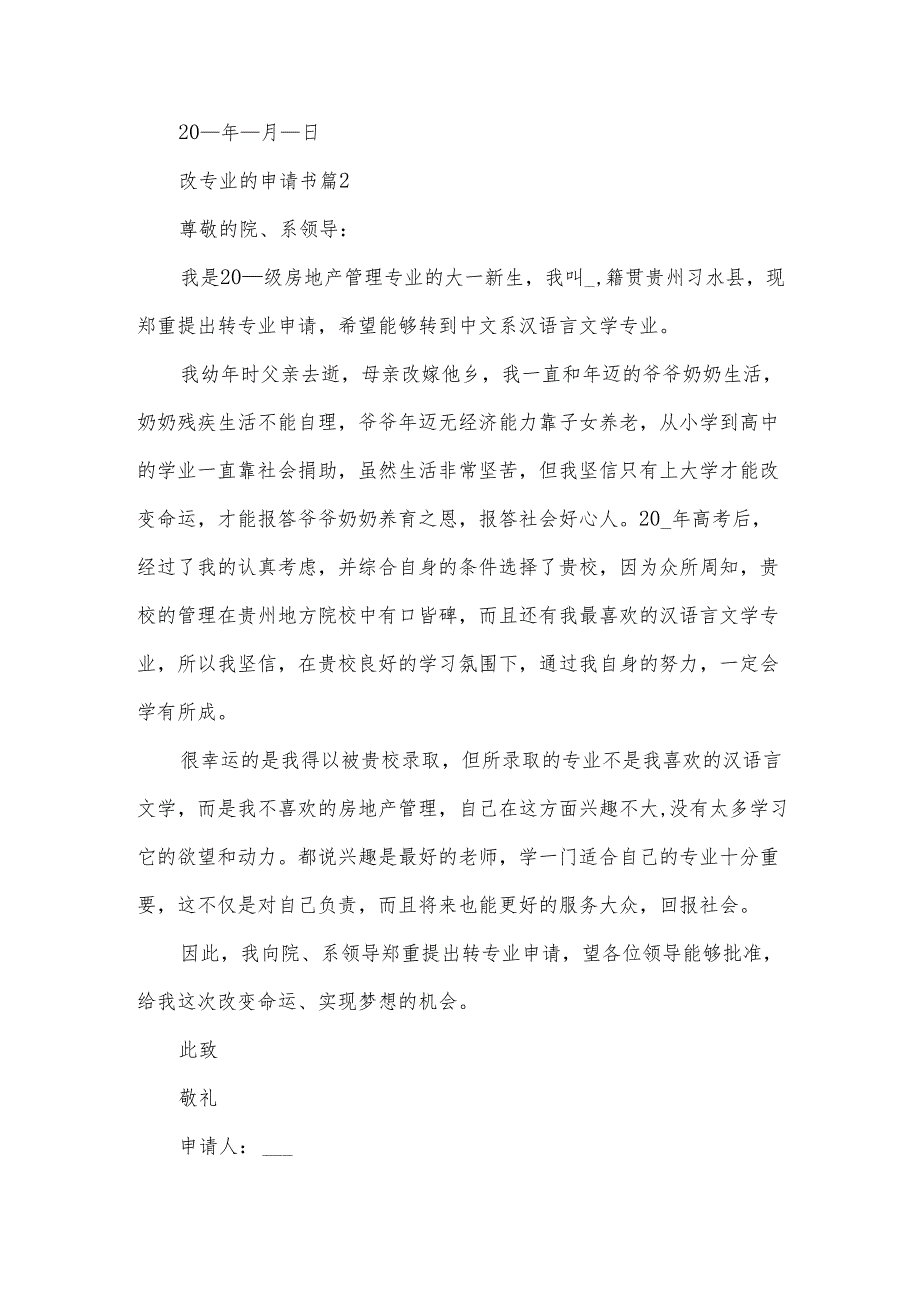 20—年—月—日
改专业的申请书篇2
尊敬的院、系领导：
我是20—级房地产管理专业的大一新生，我叫_,籍贯贵州习水县，现
郑重提出转专业申请，希望能够转到中文系汉语言文学专业。
我幼年时父亲去逝，母亲改嫁他乡，我一直和年迈的爷爷奶奶生活，
奶奶残疾生活不能自理，爷爷年迈无经济能力靠子女养老，从小学到高中
的学业一直靠社会捐助，虽然生活非常坚苦，但我坚信只有上大学才能改
变命运，才能报答爷爷奶奶养育之恩，报答社会好心人。20_年高考后，
经过了我的认真考虑，并综合自身的条件选择了贵校，因为众所周知，贵
校的管理在贵州地方院校中有口皆碑，而且还有我最喜欢的汉语言文学专
业，所以我坚信，在贵校良好的学习氛围下，通过我自身的努力，一定会
学有所成。
很幸运的是我得以被贵校录取，但所录取的专业不是我喜欢的汉语言
文学，而是我不喜欢的房地产管理，自己在这方面兴趣不大,没有太多学习
它的欲望和动力。都说兴趣是最好的老师，学一门适合自己的专业十分重
要，这不仅是对自己负责，而且将来也能更好的服务大众，回报社会。
因此，我向院、系领导郑重提出转专业申请，望各位领导能够批准，
给我这次改变命运、实现梦想的机会。
此致
敬礼
申请人：___